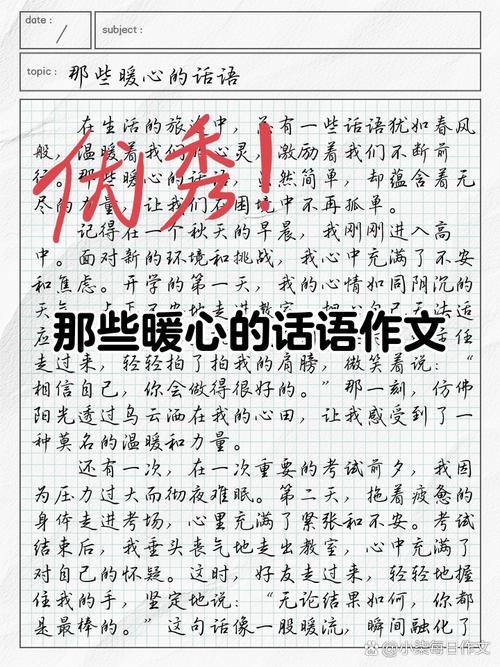 date:
subject:
topic: 那些暖心的话语
在生活的旅途中，总有一些话语犹如春风
般，温暖着我们的心灵，激励着我们不断前
行。那些暖心的话语，虽然简单，却蕴含着无
尽的力量，让我们在困境中不再孤单。
优秀！
记得在一个秋天的早晨，我刚刚进入高
中。面对新的环境和挑战，我心中充满了不安
和焦虑。开学的第一天，我的心情如同阴沉的
天气，
应
那些暖心的话语作文
走过来，轻轻拍了拍我的肩膀，微笑着说：“
相信自己，你会做得很好的。”那一刻，仿佛
阳光透过乌云洒在我的心田，让我感受到了一
种莫名的温暖和力量。
还有一次，在一次重要的考试前夕，我因
为压力过大而彻夜难眠。第二天，拖着疲惫的
身体走进考场，心里充满了紧张和不安。考试
结束后，我垂头丧气地走出教室，心中充满了
对自己的怀疑。这时，好友走过来，轻轻地握
住我的手，坚定地说：“无论结果如何，你都
是最棒的。”这句话像一股暖流，瞬间融化了
小柒每日作文